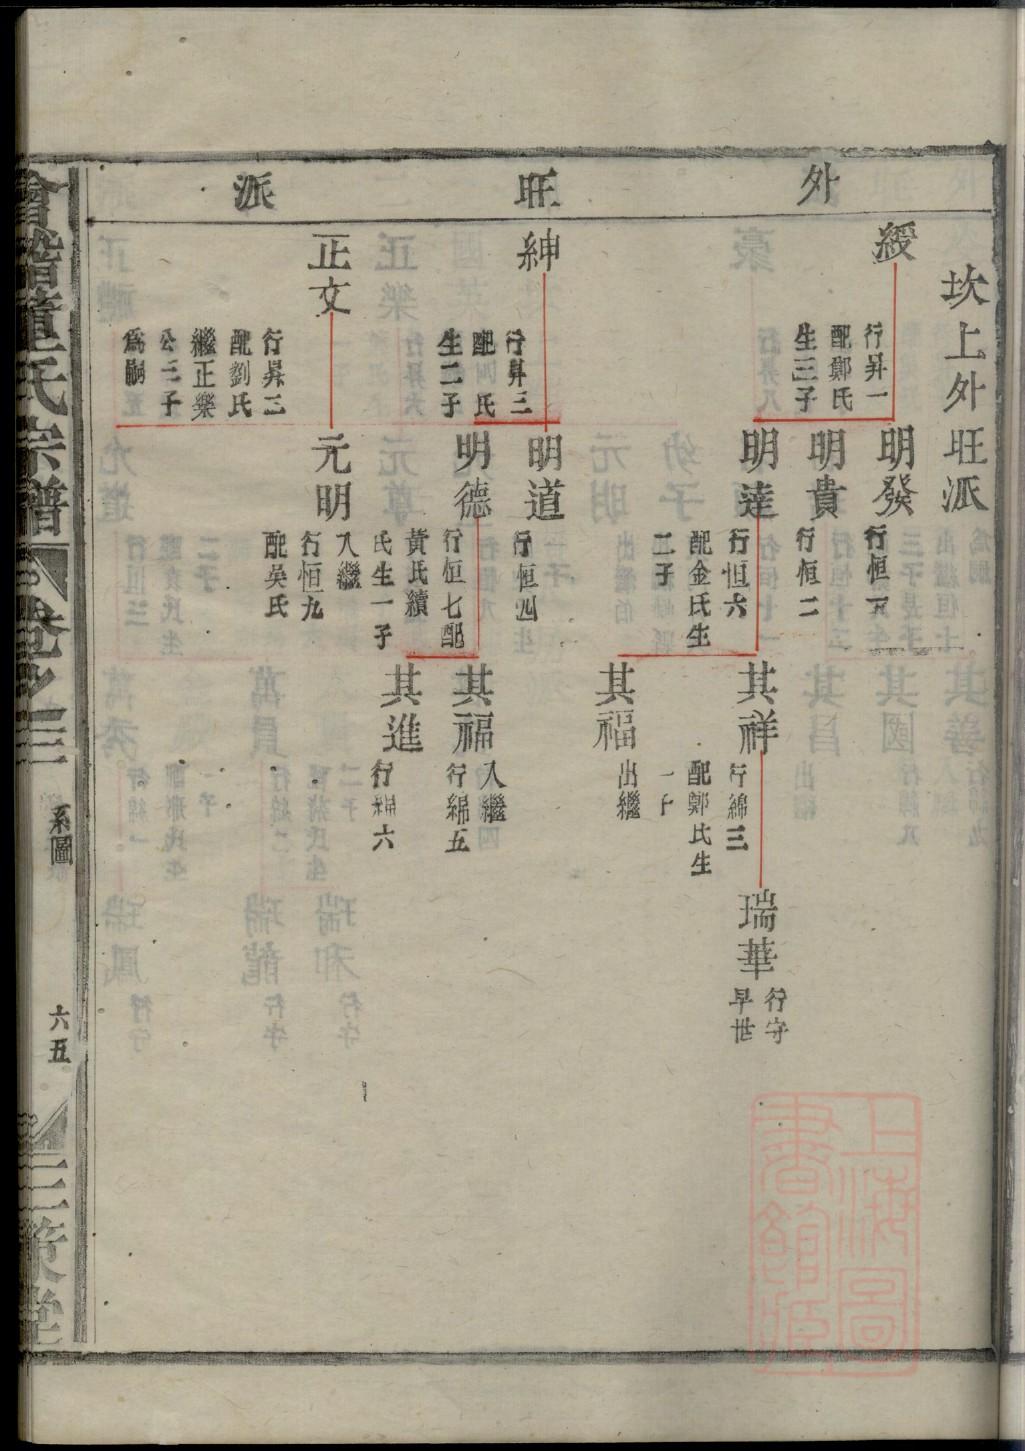 外旺派
坎上外旺派
綬
行昇一
配鄭氏
生三子
明發
行恒五
明貴
行恒二
明達
行恒六
配金氏生
二子
其祥
行綿三
配鄭氏生
一子
瑞華
行守
早世
其福
出繼
紳
行昇三
配 氏
生二子
明道
行恒四
明德
行恒七配
黃氏續
氏生一子
其福
入繼
行綿五
其進
行綿六
正文
行昇三
配劉氏
繼正樂
公三子
為嗣
元明
入繼
行恒九
配吳氏
會稽董氏宗譜
卷之三
系圖
六五
三策堂
上海圖
書館藏